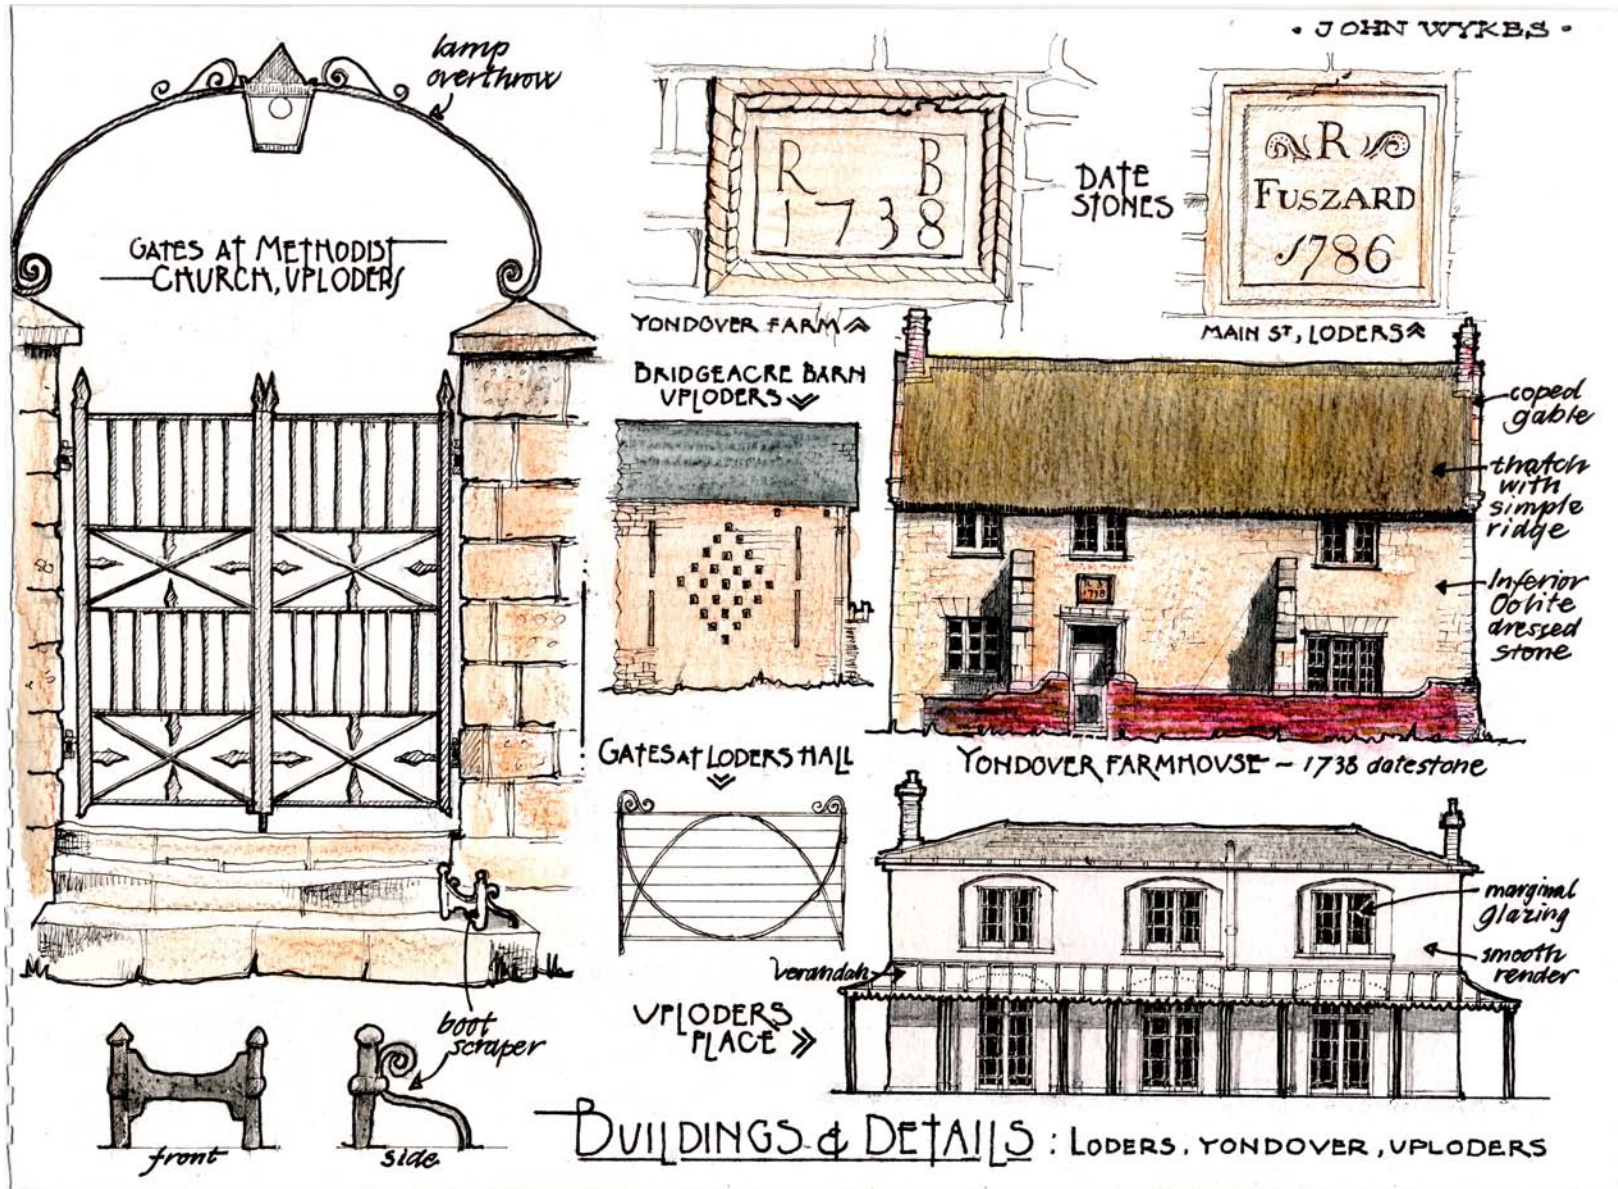 · JOHN WYKES ·
lamp
overthrow
GATES AT METHODIST
CHURCH, UPLODERS
R B
1738
DATE
STONES
R
FUSZARD
1786
YONDOVER FARM
MAIN ST, LODERS
BRIDGEACRE BARN
UPLODERS
coped
gable
thatch
with
simple
ridge
Inferior
Oolite
dressed
stone
1738
YONDOVER FARMHOUSE ~ 1738 datestone
GATES AT LODERS HALL
marginal
glazing
smooth
render
verandah
UPLODERS
PLACE
boot
scraper
front
side
BUILDINGS & DETAILS : LODERS, YONDOVER, UPLODERS